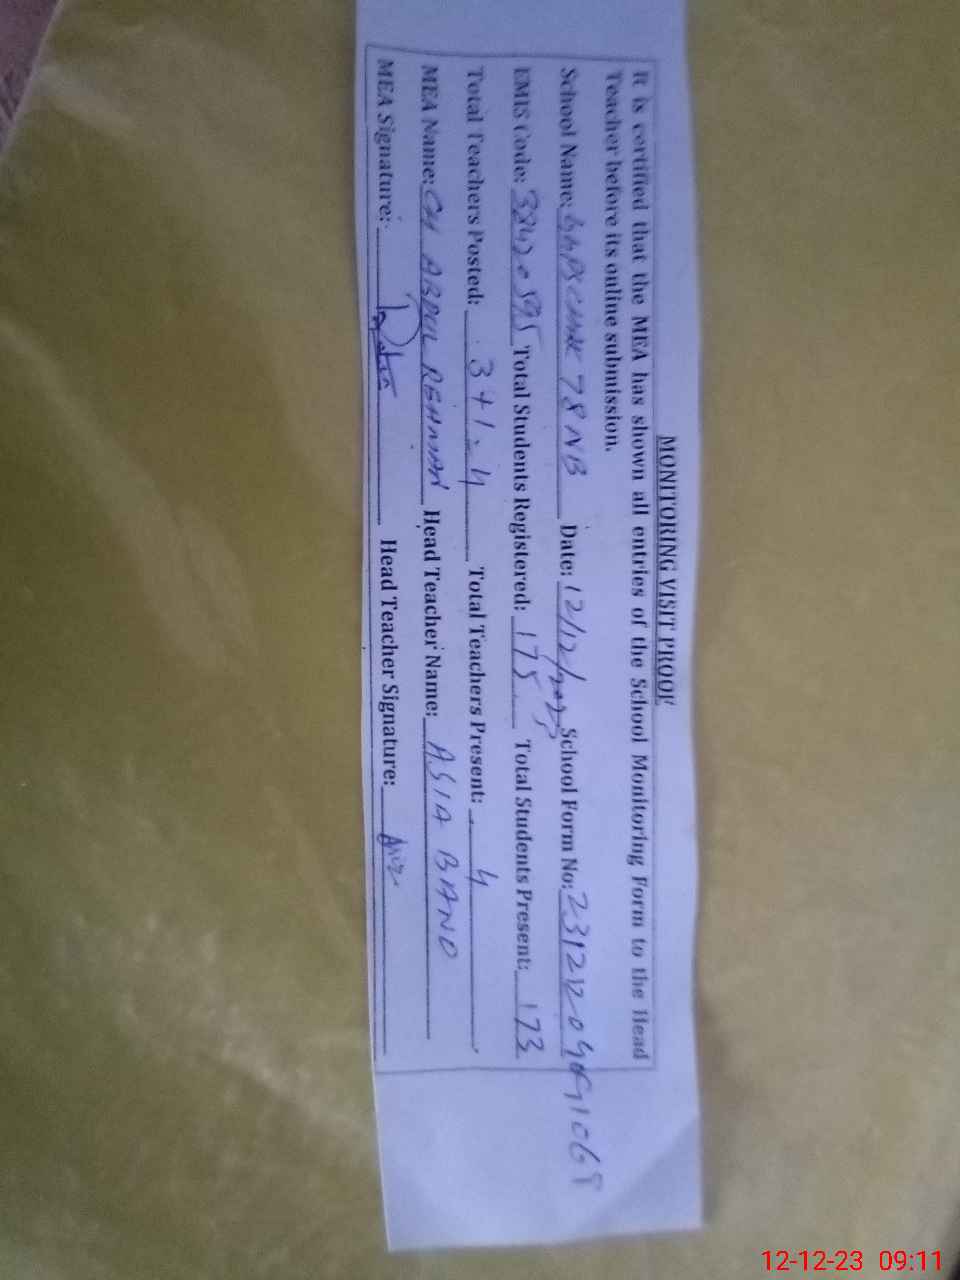 MONITORING VISIT PROOF
It is certified that the MEA has shown all entries of the School Monitoring Form to the Head
Teacher before its online submission.
School Name: 78 NB Date: 12/12/2023 School Form No:
EMIS Code: 38420595 Total Students Registered: 175 Total Students Present: 173
Total Teachers Posted: 4 Total Teachers Present: 4
MEA Name: CH ABDUL REHMAN Head Teacher Name: ASIA BANO
MEA Signature: Head Teacher Signature:
12-12-23 09:11